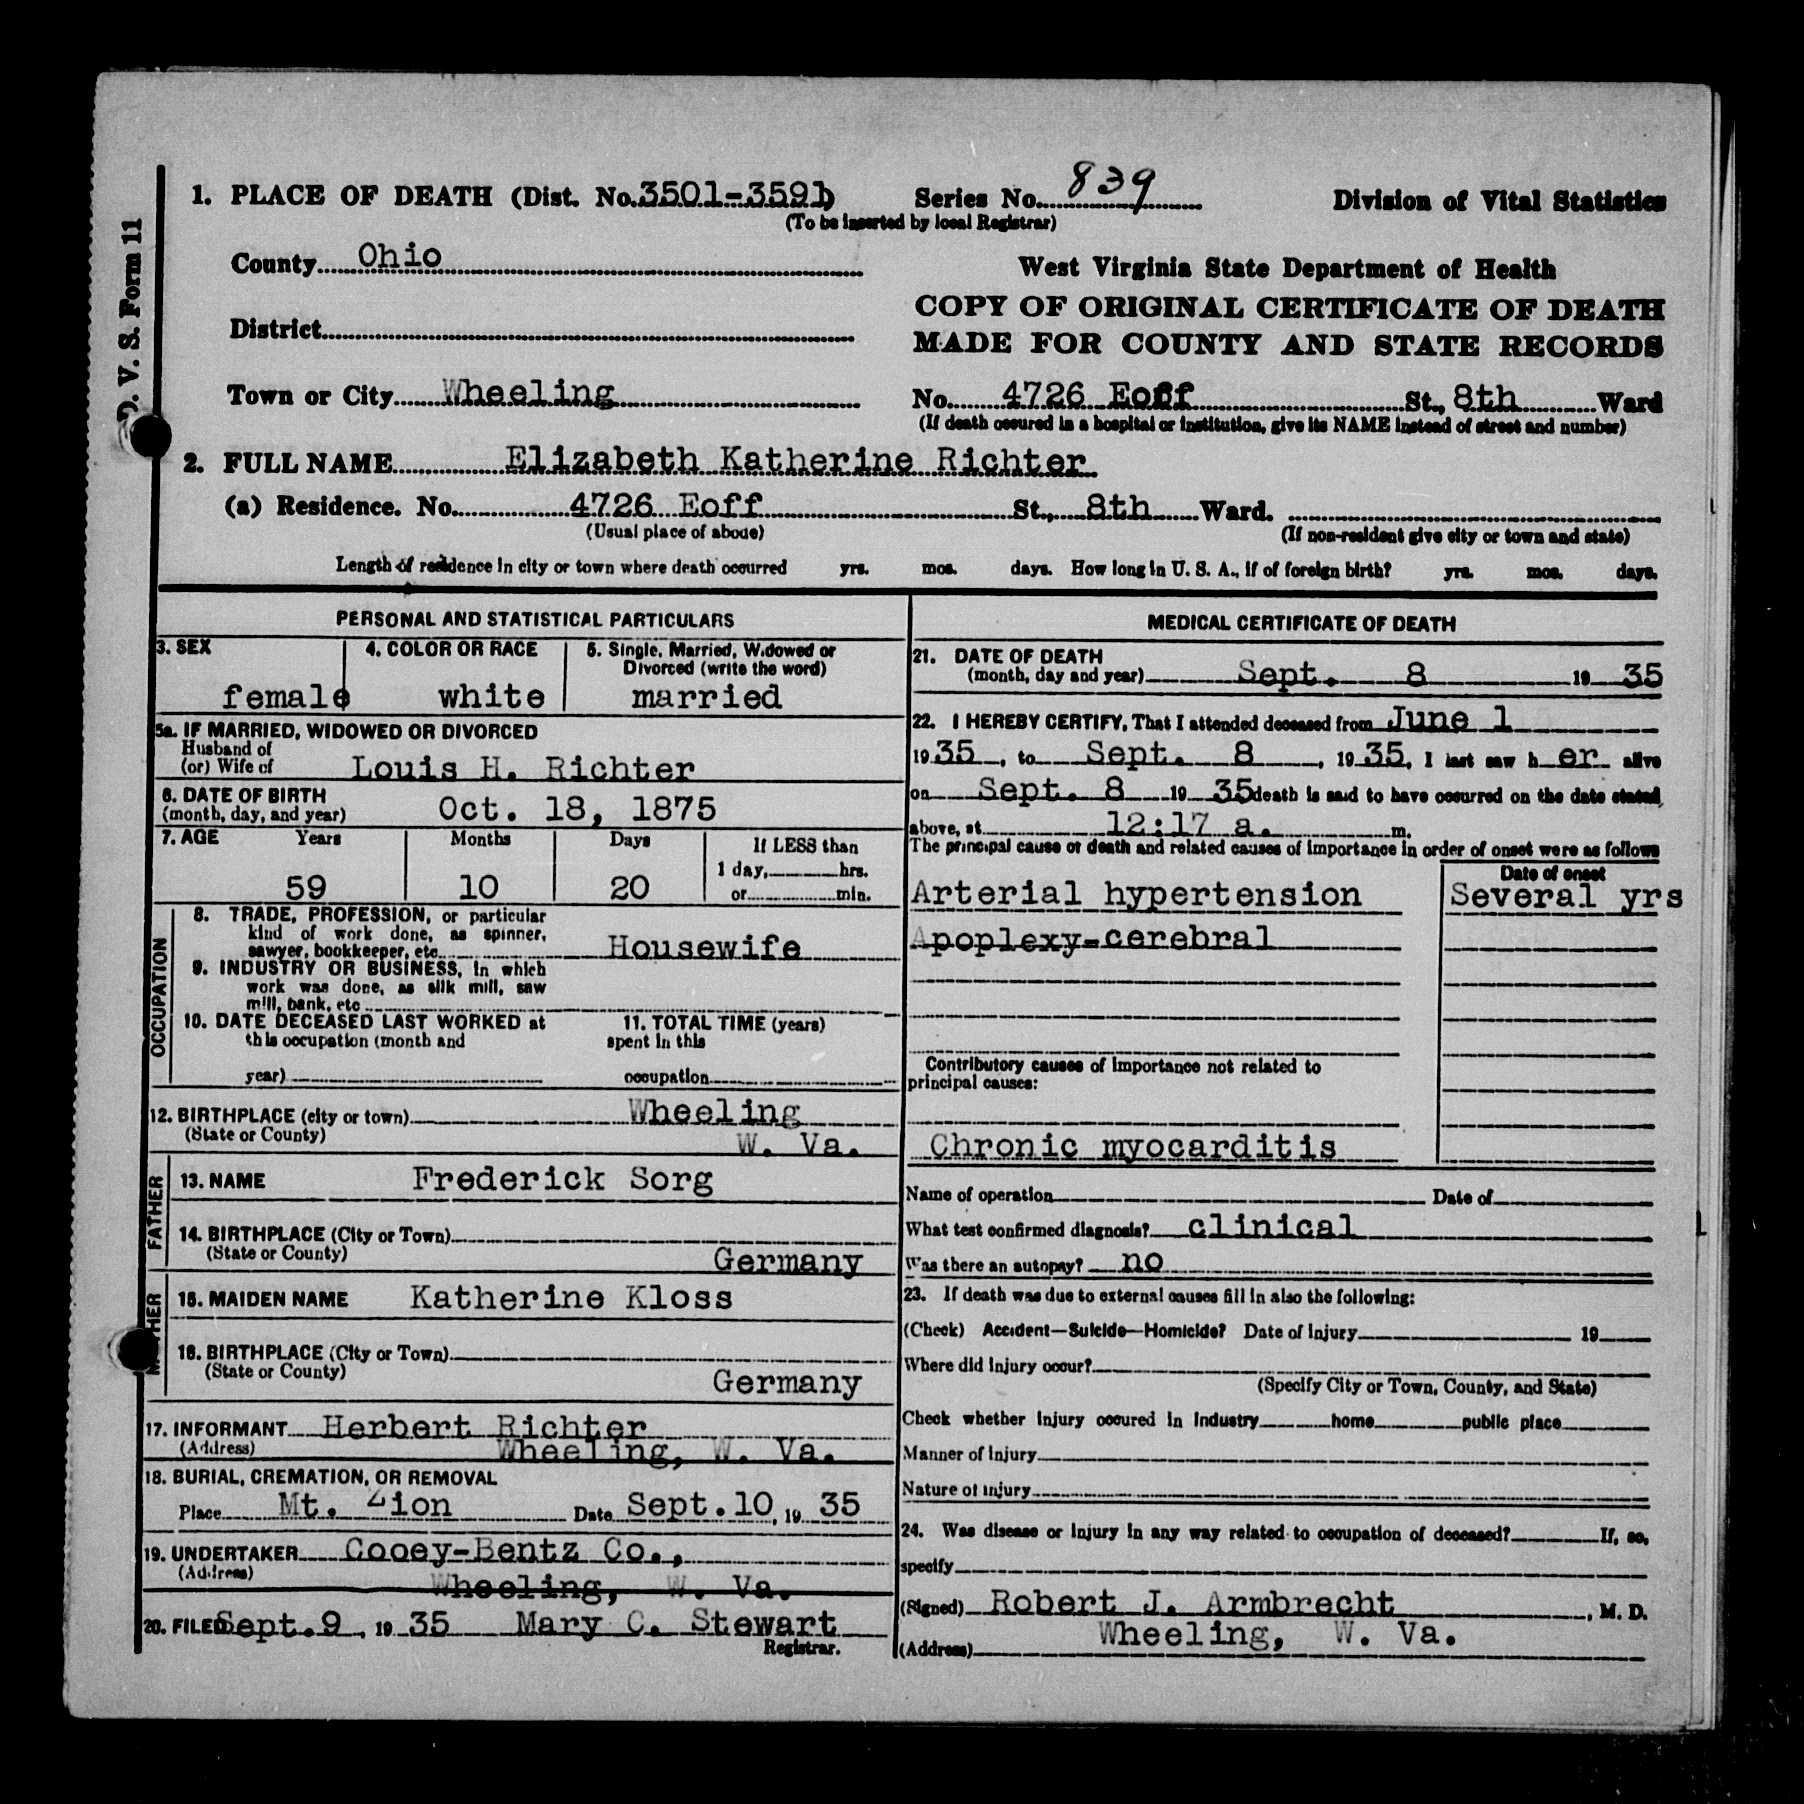 D. V. S. Form 11
1. PLACE OF DEATH (Dist. No. 3501-3591) Series No. 839 Division of Vital Statistics
(To be inserted by local Registrar)
County Ohio
West Virginia State Department of Health
COPY OF ORIGINAL CERTIFICATE OF DEATH
District
MADE FOR COUNTY AND STATE RECORDS
Town or City Wheeling No. 4726 Eoff St., 8th Ward
(If death occured in a hospital or institution, give its NAME instead of street and number)
2. FULL NAME Elizabeth Katherine Richter
(a) Residence. No. 4726 Eoff St., 8th Ward.
(Usual place of abode) (If non-resident give city or town and state)
Length of residence in city or town where death occurred yrs. mos. days. How long in U. S. A., if of foreign birth? yrs. mos. days.
PERSONAL AND STATISTICAL PARTICULARS
3. SEX 4. COLOR OR RACE 5. Single, Married, Widowed or
Divorced (write the word)
female white married
5a. IF MARRIED, WIDOWED OR DIVORCED
Husband of
(or) Wife of Louis H. Richter
6. DATE OF BIRTH
(month, day, and year) Oct. 18, 1875
7. AGE Years Months Days If LESS than
1 day, hrs.
59 10 20 or min.
OCCUPATION
8. TRADE, PROFESSION, or particular
kind of work done, as spinner,
sawyer, bookkeeper, etc. Housewife
9. INDUSTRY OR BUSINESS, in which
work was done, as silk mill, saw
mill, bank, etc
10. DATE DECEASED LAST WORKED at 11. TOTAL TIME (years)
this occupation (month and spent in this
year) occupation
12. BIRTHPLACE (city or town) Wheeling
(State or County) W. Va.
FATHER
13. NAME Frederick Sorg
14. BIRTHPLACE (City or Town)
(State or County) Germany
MOTHER
15. MAIDEN NAME Katherine Kloss
16. BIRTHPLACE (City or Town)
(State or County) Germany
17. INFORMANT Herbert Richter
(Address) Wheeling, W. Va.
18. BURIAL, CREMATION, OR REMOVAL
Place Mt. Zion Date Sept. 10, 19 35
19. UNDERTAKER Cooey-Bentz Co.,
(Address) Wheeling, W. Va.
20. FILED Sept. 9, 19 35 Mary C. Stewart
Registrar.
MEDICAL CERTIFICATE OF DEATH
21. DATE OF DEATH
(month, day and year) Sept. 8 19 35
22. I HEREBY CERTIFY, That I attended deceased from June 1
19 35, to Sept. 8, 19 35, I last saw h er alive
on Sept. 8 19 35 death is said to have occurred on the date stated
above, at 12:17 a. m.
The principal cause of death and related causes of importance in order of onset were as follows
Date of onset
Arterial hypertension Several yrs
Apoplexy-cerebral
Contributory causes of importance not related to
principal causes:
Chronic myocarditis
Name of operation Date of
What test confirmed diagnosis? clinical
Was there an autopsy? no
23. If death was due to external causes fill in also the following:
(Check) Accident—Suicide—Homicide? Date of injury 19
Where did injury occur?
(Specify City or Town, County, and State)
Check whether injury occured in industry home public place
Manner of injury
Nature of injury
24. Was disease or injury in any way related to occupation of deceased? If, so,
specify
(Signed) Robert J. Armbrecht, M. D.
(Address) Wheeling, W. Va.